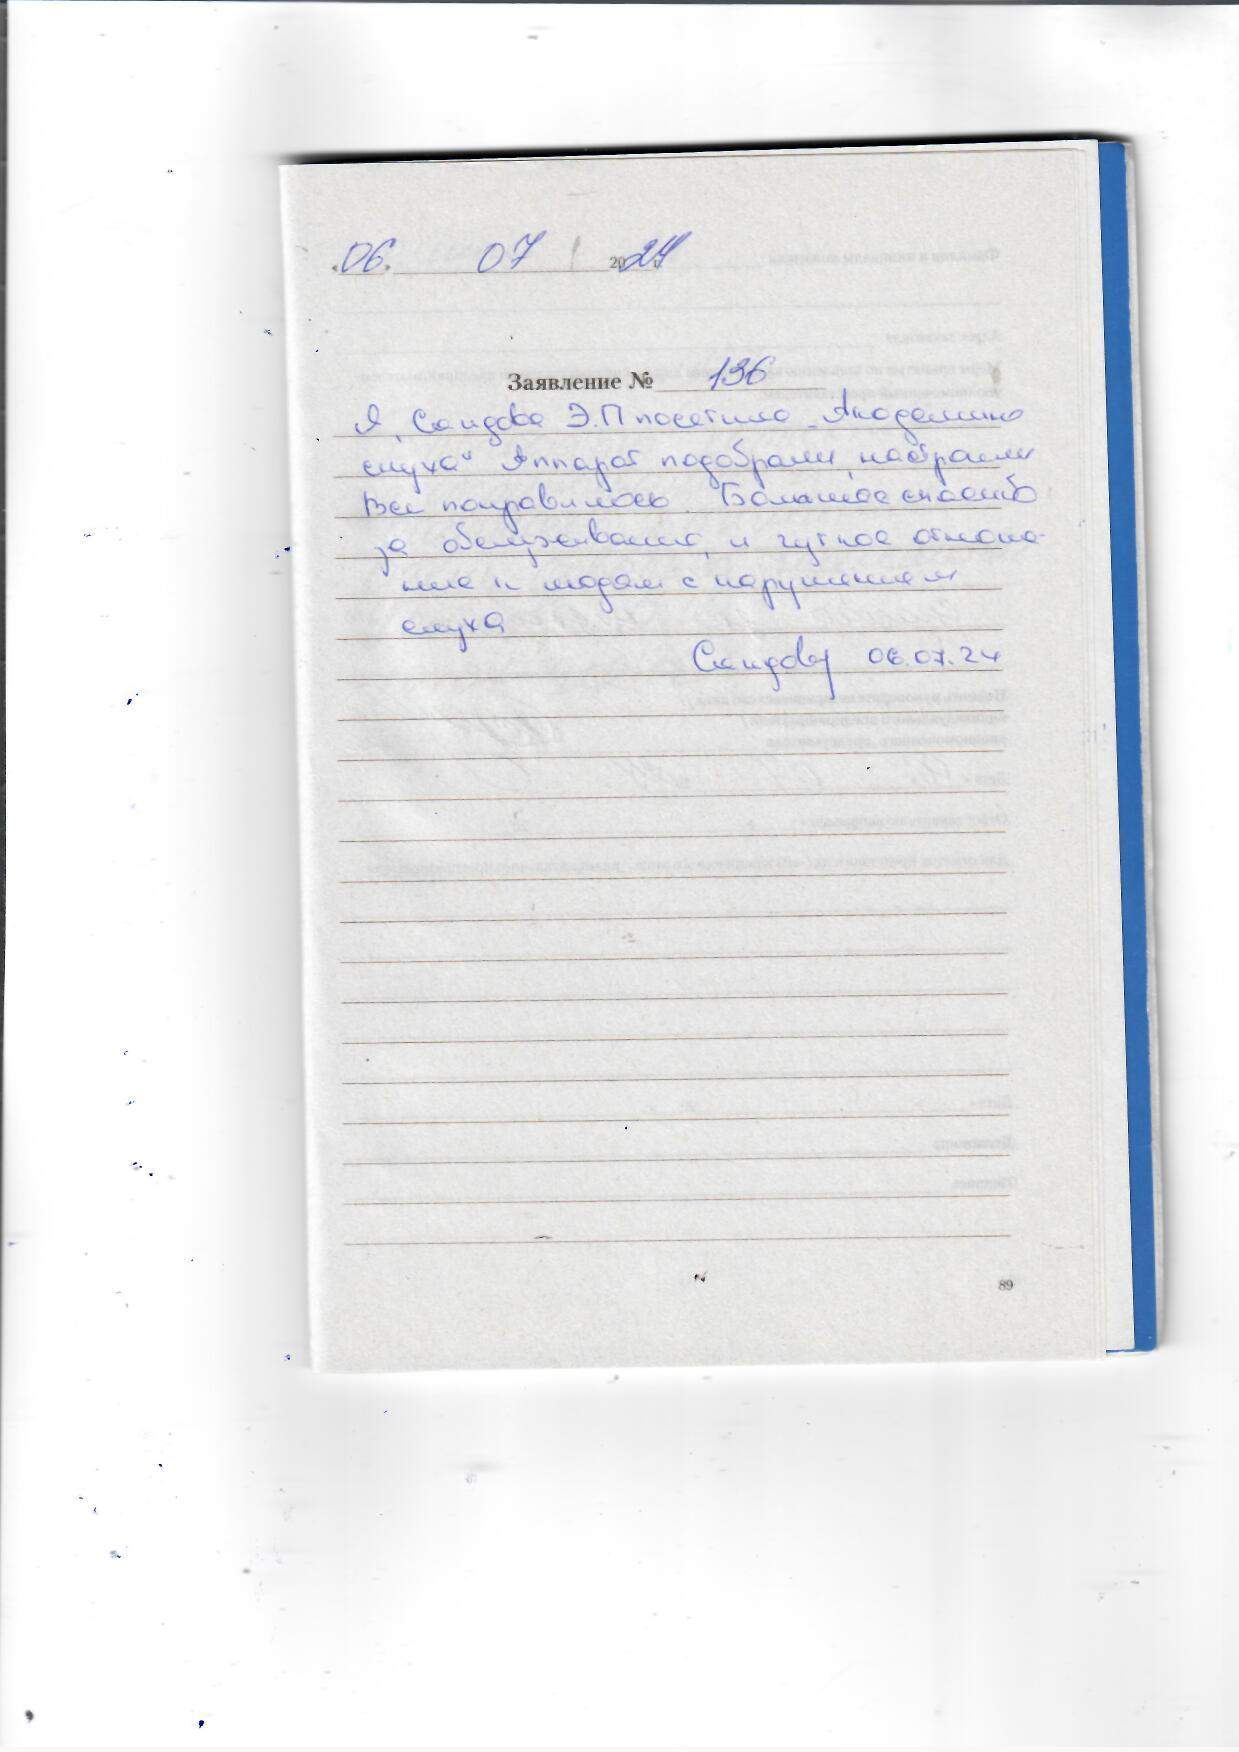 «06» 07 2024 г.
Заявление № 136
Я, Саидова Э.П посетила „Академию
слуха" Аппарат подобрали, настроили
Все понравилось. Большое спасибо
за обслуживание, и чуткое отноше-
ние к людям с нарушением
слуха
Саидова 06.07.24
89